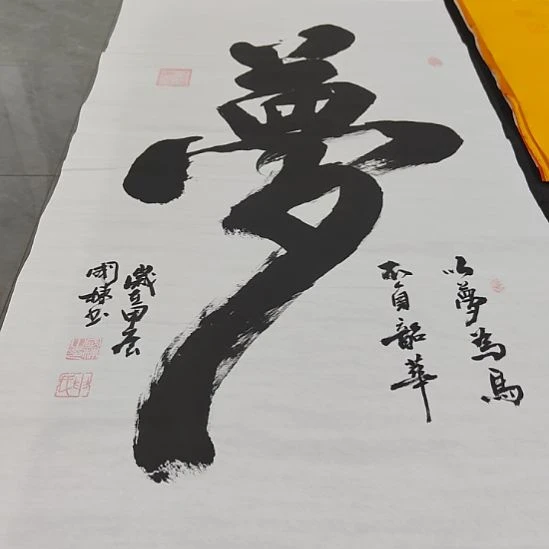 夢
以夢為馬
不負韶華
歲在甲辰
國棟書